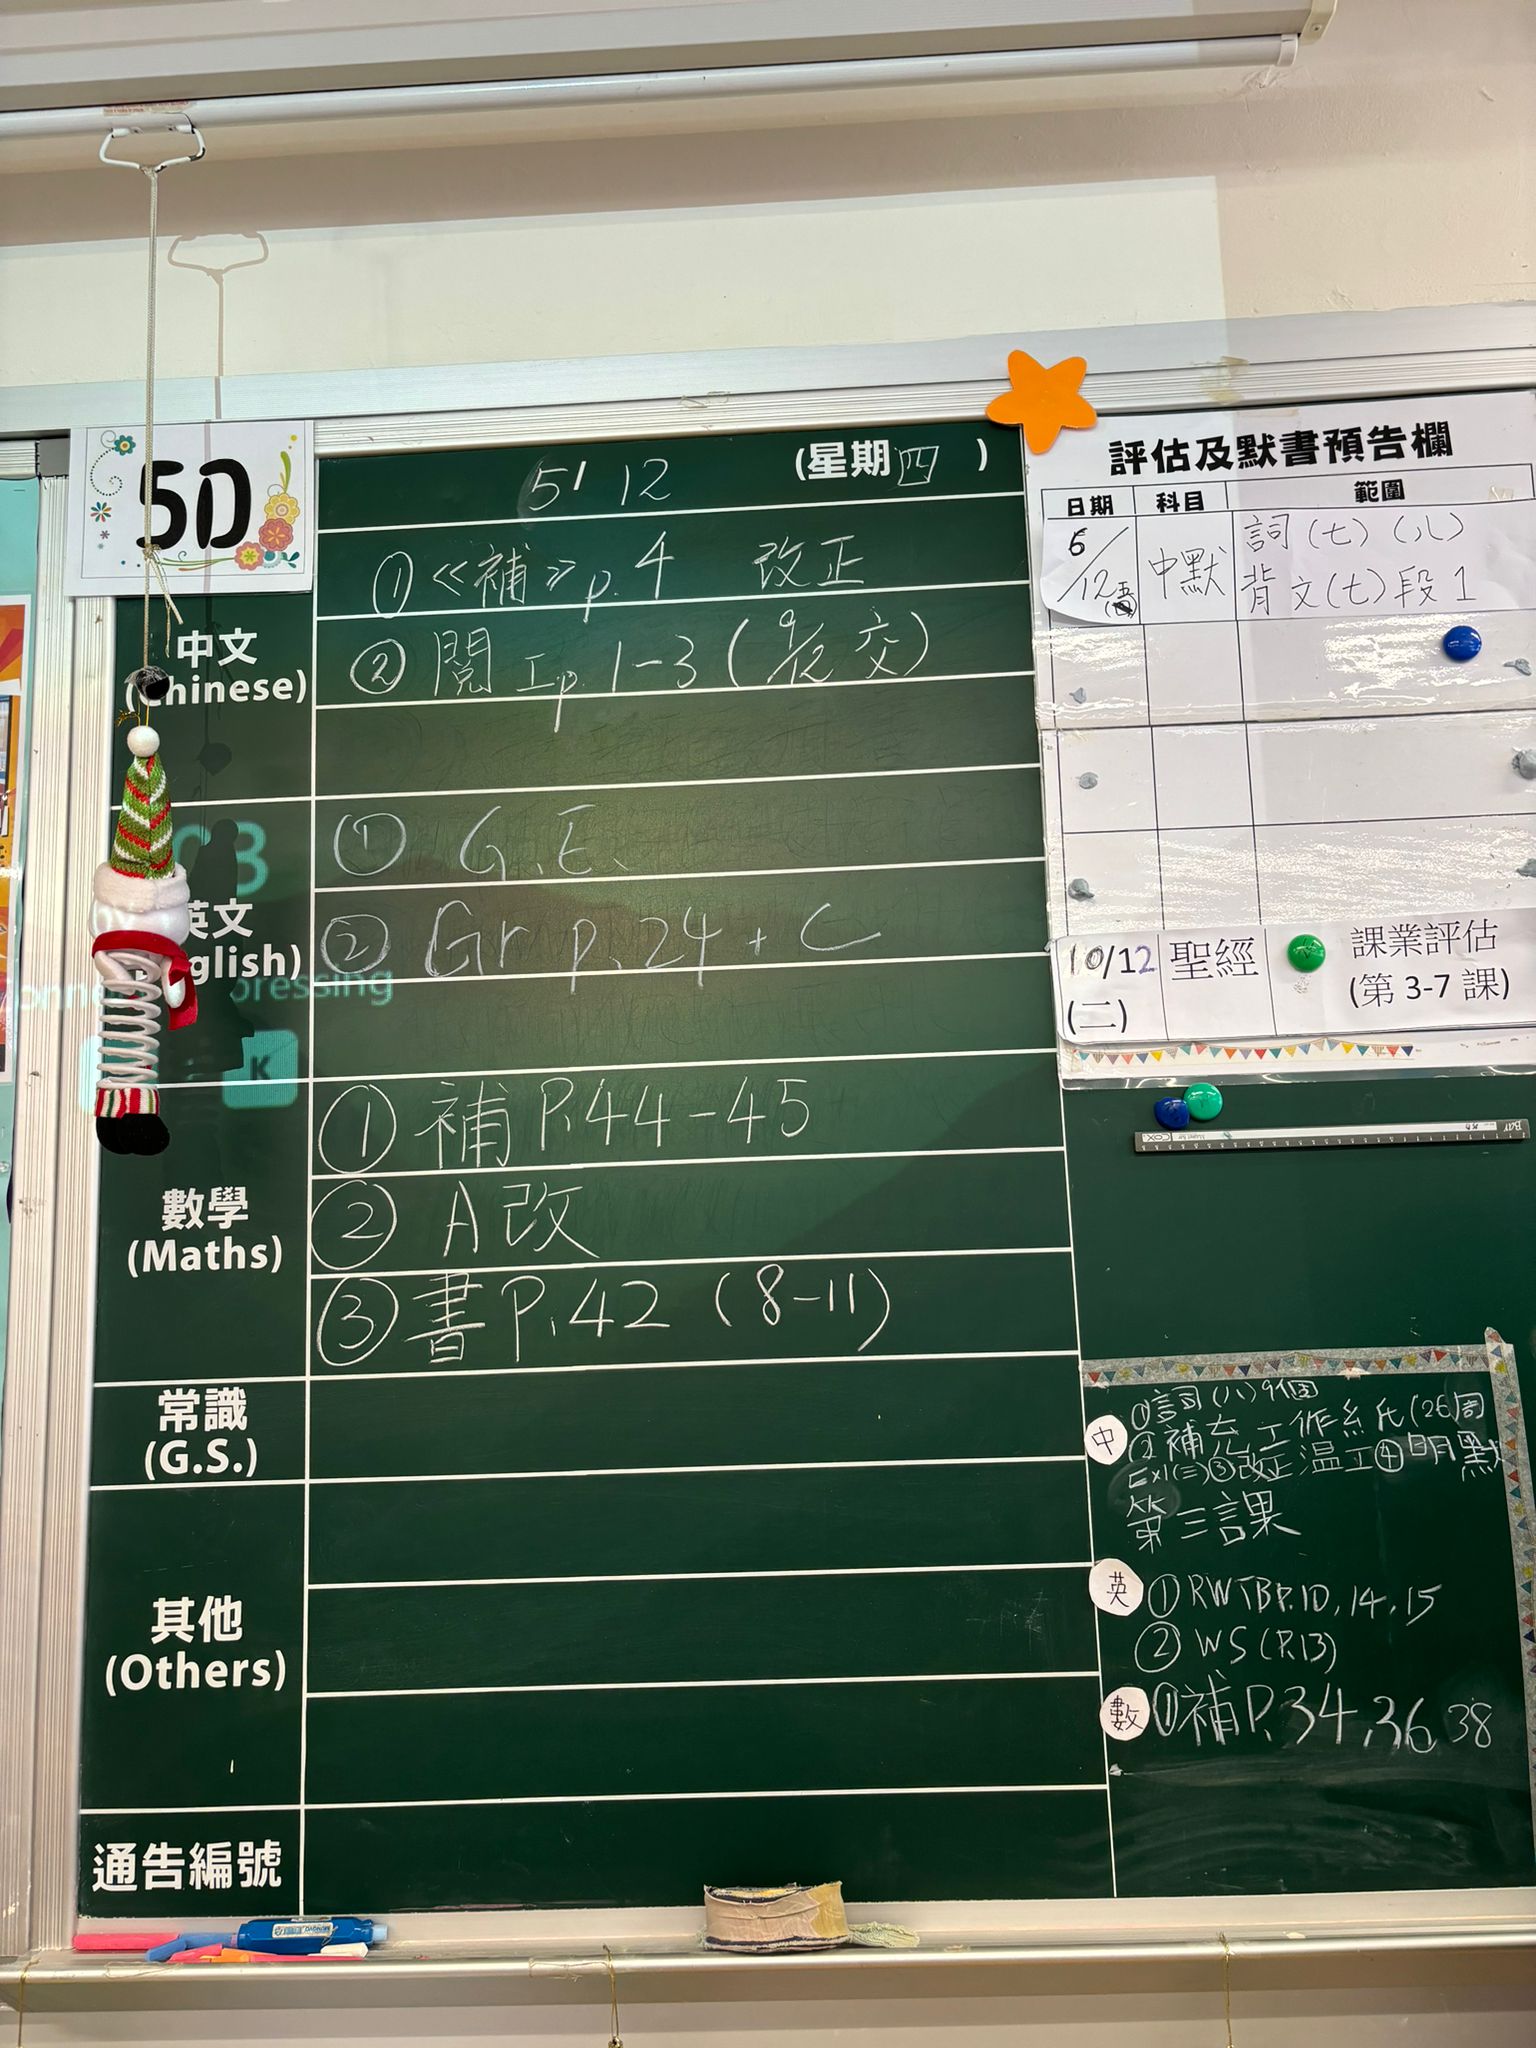 5D
5/12 (星期四)
中文
(Chinese)
① 《補》p.4 改正
② 閱工p.1-3 (9/12 交)
英文
① G.E.
② Gr p.24 + C
pressing
K
數學
(Maths)
① 補 P.44-45
② A改
③ 書 P.42 (8-11)
常識
(G.S.)
其他
(Others)
通告編號
評估及默書預告欄
日期 科目 範圍
6/12 中默 詞(七)(八)
背文(七)段1
10/12
(二)
聖經
課業評估
(第 3-7 課)
中
①詞(八)9個
②補充工作紙(26周
Ex1(三)③改正温工④明默
第三課
英 ① RWTB P.10, 14, 15
② WS (P.13)
數 ①補P.34, 36 38